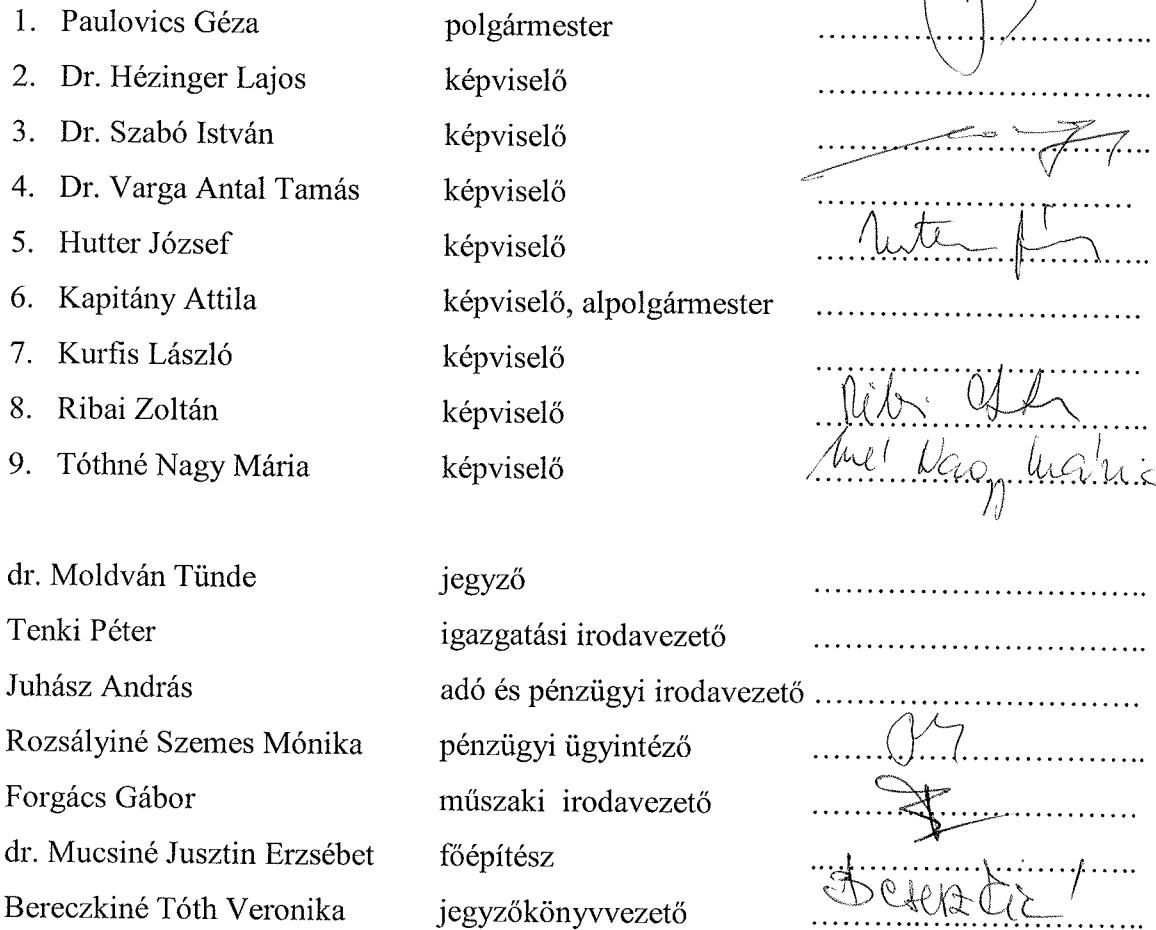 1. Paulovics Géza polgármester ................................
2. Dr. Hézinger Lajos képviselő ................................
3. Dr. Szabó István képviselő ................................
4. Dr. Varga Antal Tamás képviselő ..............................
5. Hutter József képviselő ................................
6. Kapitány Attila képviselő, alpolgármester ...............................
7. Kurfis László képviselő ...............................
8. Ribai Zoltán képviselő ................................
9. Tóthné Nagy Mária képviselő Nagy Mária ................................
dr. Moldván Tünde jegyző ................................
Tenki Péter igazgatási irodavezető ................................
Juhász András adó és pénzügyi irodavezető ...............................
Rozsályiné Szemes Mónika pénzügyi ügyintéző ................................
Forgács Gábor műszaki irodavezető ...............................
dr. Mucsiné Jusztin Erzsébet főépítész ...............................
Bereczkiné Tóth Veronika jegyzőkönyvvezető ................................